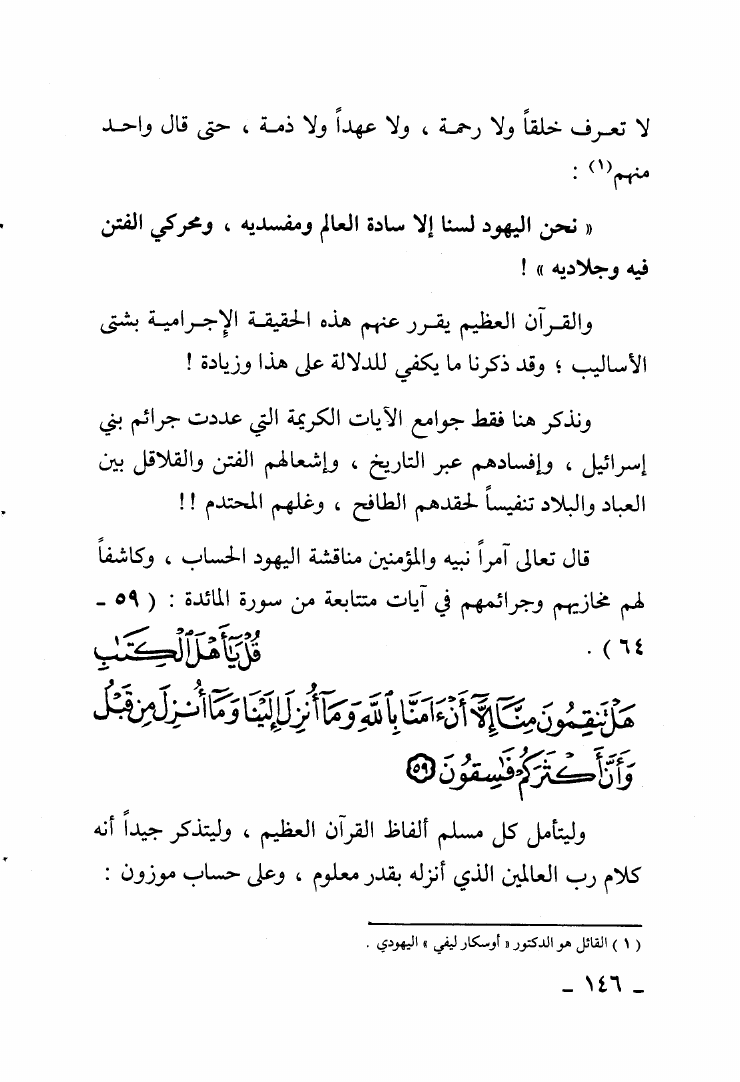 لا تعـرف خلقاً ولا رحمـة ، ولا عهداً ولا ذمـة ، حتى قال واحـد
منهم(١) :
« نحن اليهود لسنا إلا سادة العالم ومفسديه ، ومحركي الفتن
فيه وجلاديه » !
والقـرآن العظيم يقـرر عنهم هذه الحقيقـة الإجـراميـة بشتى
الأساليب ؛ وقد ذكرنا ما يكفي للدلالة على هذا وزيادة !
ونذكر هنا فقط جوامع الآيات الكريمة التي عددت جرائم بني
إسرائيل ، وإفسادهم عبر التاريخ ، وإشعالهم الفتن والقلاقل بين
العباد والبلاد تنفيساً لحقدهم الطافح ، وغلهم المحتدم !!
قال تعالى آمراً نبيه والمؤمنين مناقشة اليهود الحساب ، وكاشفاً
لهم مخازيهم وجرائمهم في آيات متتابعة من سورة المائدة : ( ٥٩ ـ
٦٤ ) . قُلْ يَٰٓأَهْلَ ٱلْكِتَٰبِ
هَلْ تَنقِمُونَ مِنَّآ إِلَّآ أَنْ ءَامَنَّا بِٱللَّهِ وَمَآ أُنزِلَ إِلَيْنَا وَمَآ أُنزِلَ مِن قَبْلُ
وَأَنَّ أَكْثَرَكُمْ فَٰسِقُونَ ٥٩
وليتأمل كل مسلم ألفاظ القرآن العظيم ، وليتذكر جيداً أنه
كلام رب العالمين الذي أنزله بقدر معلوم ، وعلى حساب موزون :
( ١ ) القائل هو الدكتور « أوسكار ليفي » اليهودي .
ـ ١٤٦ ـ